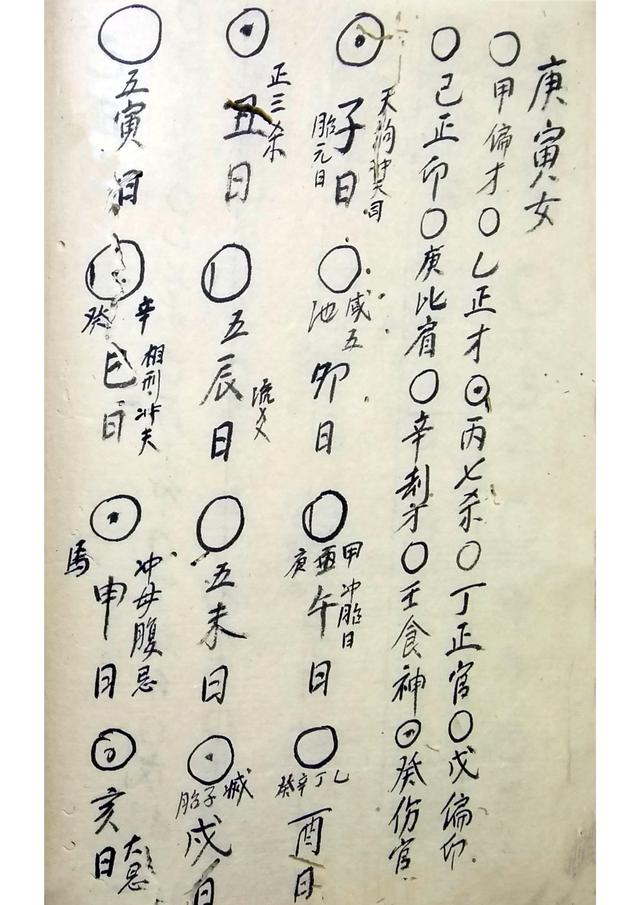 庚寅女
○甲偏才○乚正才⊙丙七杀○丁正官○戊偏印
○己正印○庚比肩○辛刦才○壬食神⊙癸伤官
天狗冲天
子日
胎元日
咸池
五
卯日
甲
庚
午日
冲胎日
乚丁辛癸
酉日
正三杀
丑日
五辰日
流
五未日
子
胎
戌日
五寅日
辛
癸
巳日
相刑冲夫
冲母腹忌
馬
申日
亥日
大忌